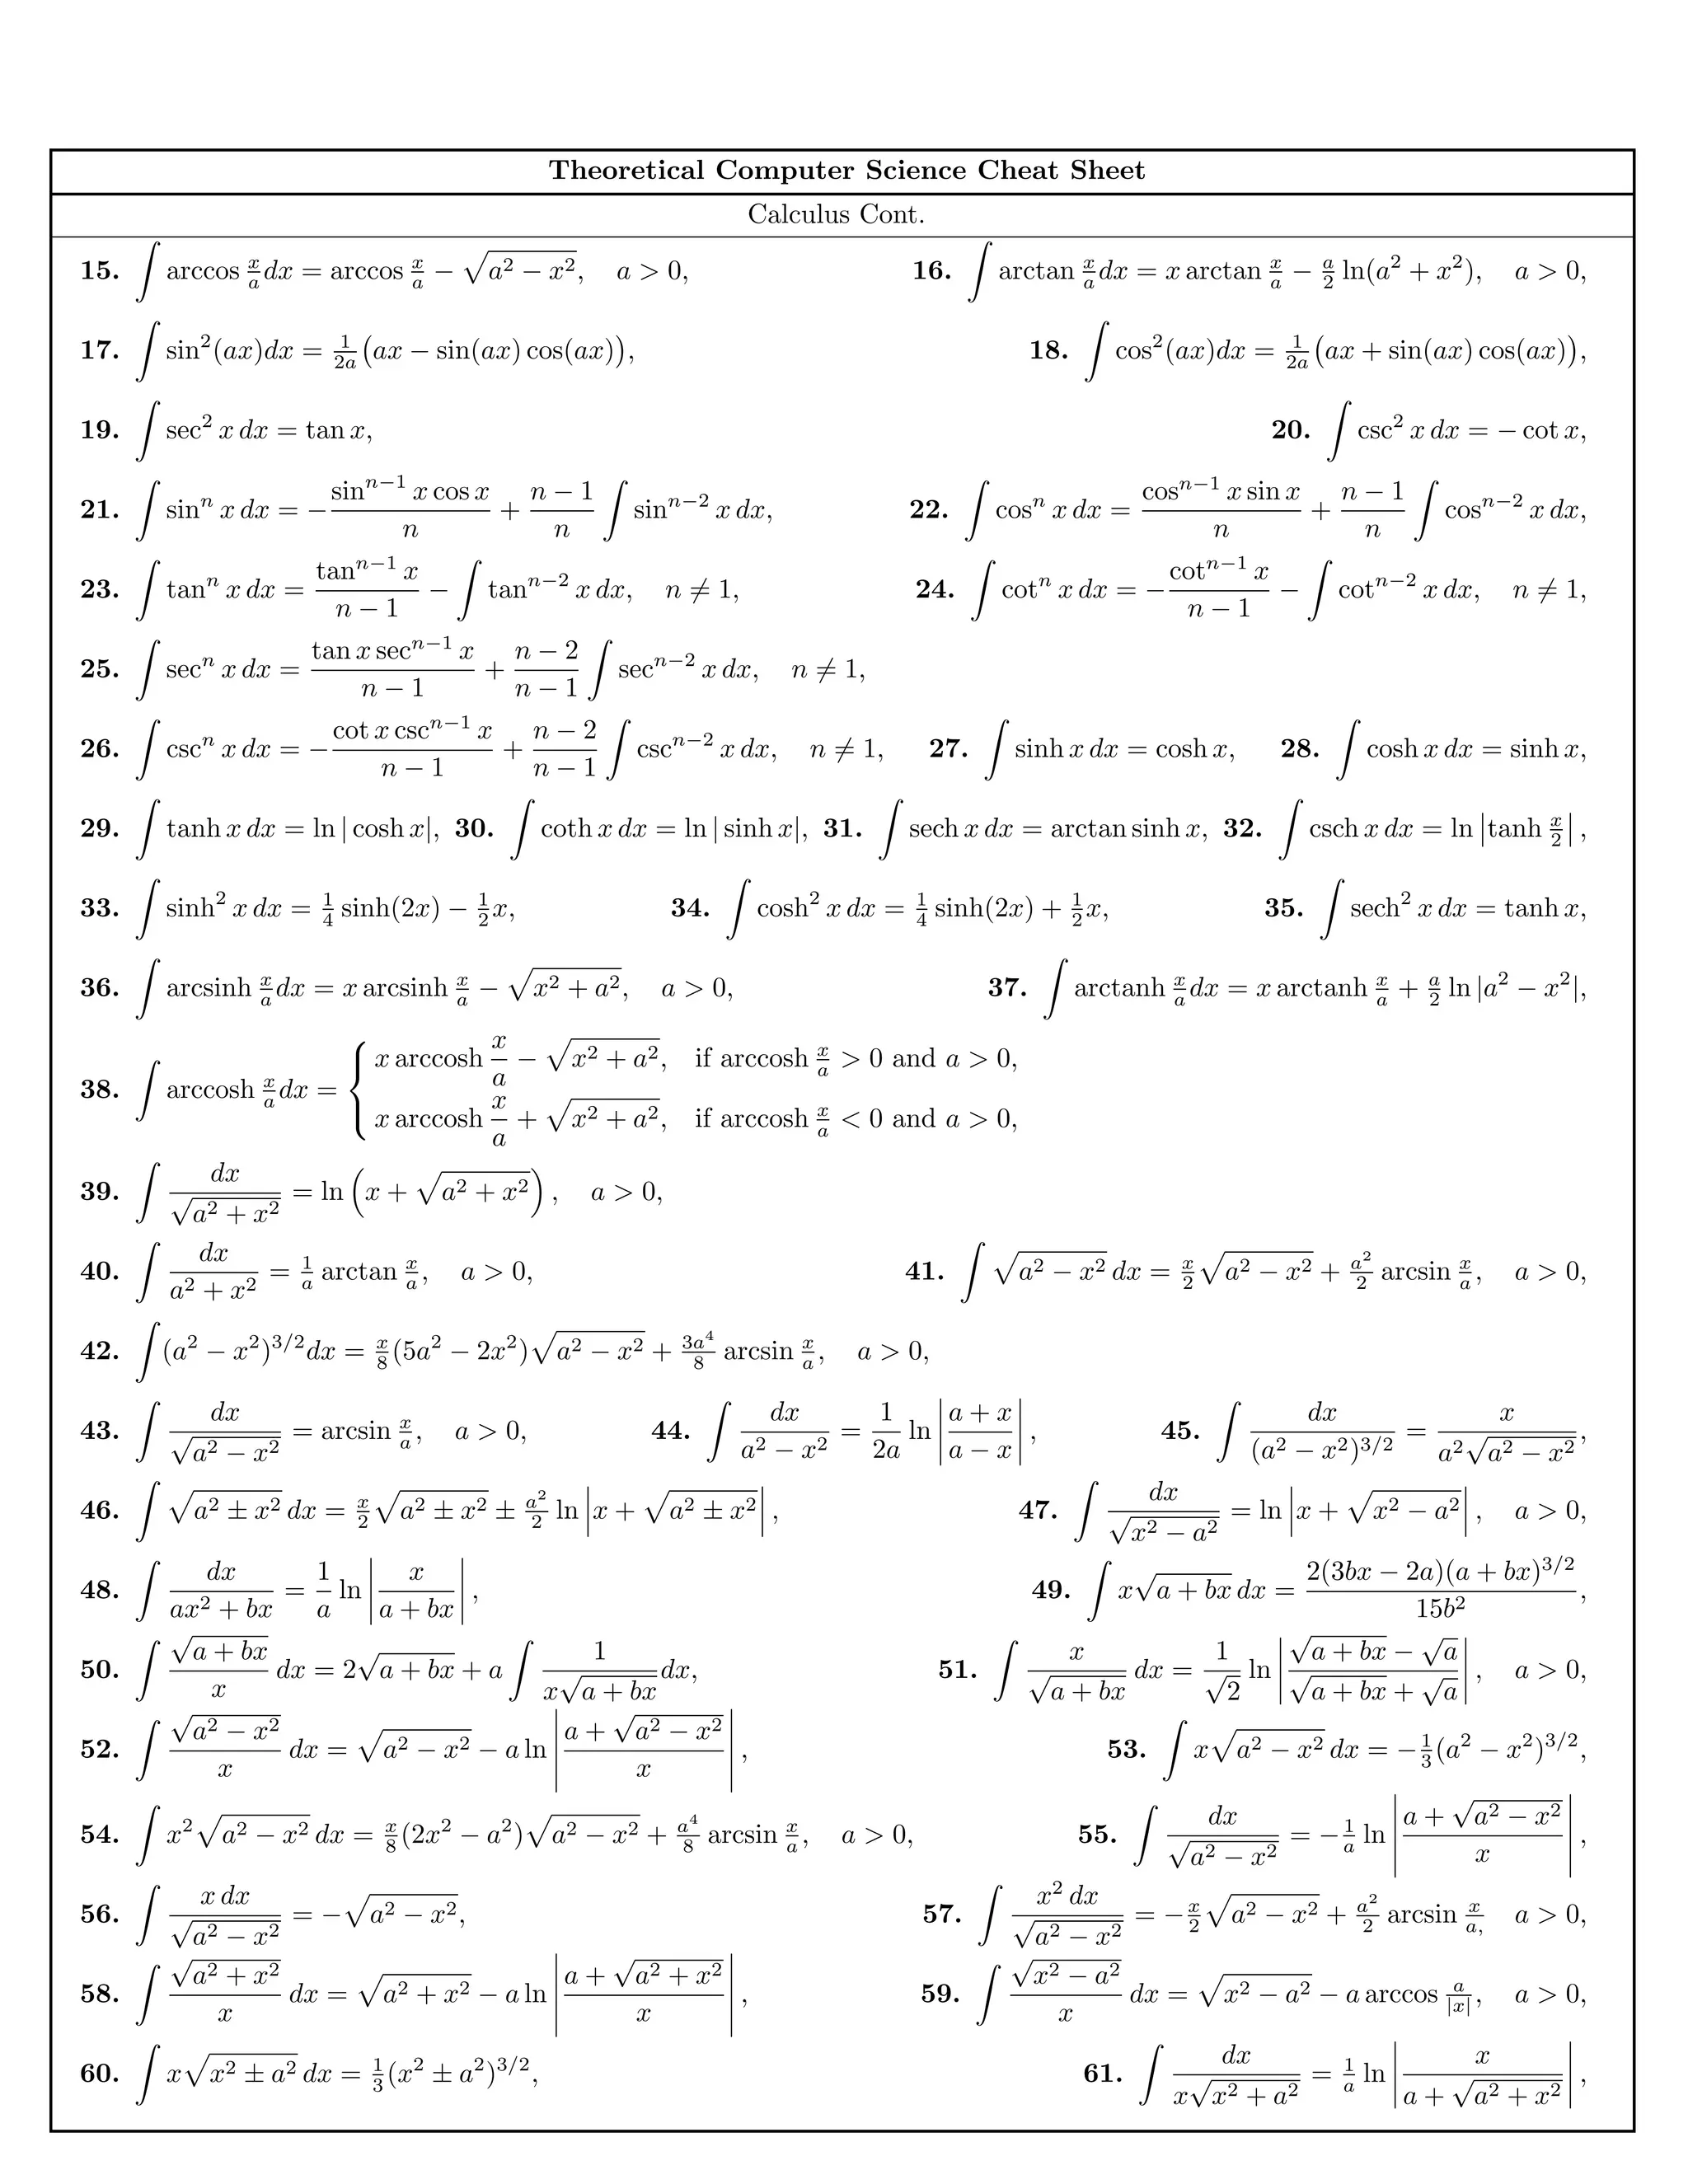 Theoretical Computer Science Cheat Sheet
Calculus Cont.
15. ∫ arccos x/a dx = arccos x/a − √(a² − x²), a > 0, 16. ∫ arctan x/a dx = x arctan x/a − a/2 ln(a² + x²), a > 0,
17. ∫ sin²(ax)dx = 1/2a (ax − sin(ax) cos(ax)), 18. ∫ cos²(ax)dx = 1/2a (ax + sin(ax) cos(ax)),
19. ∫ sec² x dx = tan x, 20. ∫ csc² x dx = − cot x,
21. ∫ sinⁿ x dx = −(sinⁿ⁻¹ x cos x)/n + (n − 1)/n ∫ sinⁿ⁻² x dx, 22. ∫ cosⁿ x dx = (cosⁿ⁻¹ x sin x)/n + (n − 1)/n ∫ cosⁿ⁻² x dx,
23. ∫ tanⁿ x dx = (tanⁿ⁻¹ x)/(n − 1) − ∫ tanⁿ⁻² x dx, n ≠ 1, 24. ∫ cotⁿ x dx = −(cotⁿ⁻¹ x)/(n − 1) − ∫ cotⁿ⁻² x dx, n ≠ 1,
25. ∫ secⁿ x dx = (tan x secⁿ⁻¹ x)/(n − 1) + (n − 2)/(n − 1) ∫ secⁿ⁻² x dx, n ≠ 1,
26. ∫ cscⁿ x dx = −(cot x cscⁿ⁻¹ x)/(n − 1) + (n − 2)/(n − 1) ∫ cscⁿ⁻² x dx, n ≠ 1, 27. ∫ sinh x dx = cosh x, 28. ∫ cosh x dx = sinh x,
29. ∫ tanh x dx = ln | cosh x|, 30. ∫ coth x dx = ln | sinh x|, 31. ∫ sech x dx = arctan sinh x, 32. ∫ csch x dx = ln |tanh x/2|,
33. ∫ sinh² x dx = 1/4 sinh(2x) − 1/2 x, 34. ∫ cosh² x dx = 1/4 sinh(2x) + 1/2 x, 35. ∫ sech² x dx = tanh x,
36. ∫ arcsinh x/a dx = x arcsinh x/a − √(x² + a²), a > 0, 37. ∫ arctanh x/a dx = x arctanh x/a + a/2 ln |a² − x²|,
38. ∫ arccosh x/a dx = { x arccosh x/a − √(x² + a²), if arccosh x/a > 0 and a > 0,
x arccosh x/a + √(x² + a²), if arccosh x/a < 0 and a > 0,
39. ∫ dx/√(a² + x²) = ln (x + √(a² + x²)), a > 0,
40. ∫ dx/(a² + x²) = 1/a arctan x/a, a > 0, 41. ∫ √(a² − x²) dx = x/2 √(a² − x²) + a²/2 arcsin x/a, a > 0,
42. ∫ (a² − x²)^3/2 dx = x/8 (5a² − 2x²)√(a² − x²) + 3a⁴/8 arcsin x/a, a > 0,
43. ∫ dx/√(a² − x²) = arcsin x/a, a > 0, 44. ∫ dx/(a² − x²) = 1/2a ln |(a + x)/(a − x)|, 45. ∫ dx/(a² − x²)^3/2 = x/(a²√(a² − x²)),
46. ∫ √(a² ± x²) dx = x/2 √(a² ± x²) ± a²/2 ln |x + √(a² ± x²)|, 47. ∫ dx/√(x² − a²) = ln |x + √(x² − a²)|, a > 0,
48. ∫ dx/(ax² + bx) = 1/a ln |x/(a + bx)|, 49. ∫ x√(a + bx) dx = 2(3bx − 2a)(a + bx)^3/2 / 15b²,
50. ∫ √(a + bx)/x dx = 2√(a + bx) + a ∫ 1/(x√(a + bx)) dx, 51. ∫ x/√(a + bx) dx = 1/√2 ln |(√(a + bx) − √a)/(√(a + bx) + √a)|, a > 0,
52. ∫ √(a² − x²)/x dx = √(a² − x²) − a ln |(a + √(a² − x²))/x|, 53. ∫ x√(a² − x²) dx = −1/3 (a² − x²)^3/2,
54. ∫ x²√(a² − x²) dx = x/8 (2x² − a²)√(a² − x²) + a⁴/8 arcsin x/a, a > 0, 55. ∫ dx/√(a² − x²) = −1/a ln |(a + √(a² − x²))/x|,
56. ∫ x dx/√(a² − x²) = −√(a² − x²), 57. ∫ x² dx/√(a² − x²) = −x/2 √(a² − x²) + a²/2 arcsin x/a, a > 0,
58. ∫ √(a² + x²)/x dx = √(a² + x²) − a ln |(a + √(a² + x²))/x|, 59. ∫ √(x² − a²)/x dx = √(x² − a²) − a arccos a/|x|, a > 0,
60. ∫ x√(x² ± a²) dx = 1/3 (x² ± a²)^3/2, 61. ∫ dx/(x√(x² + a²)) = 1/a ln |x/(a + √(a² + x²))|,